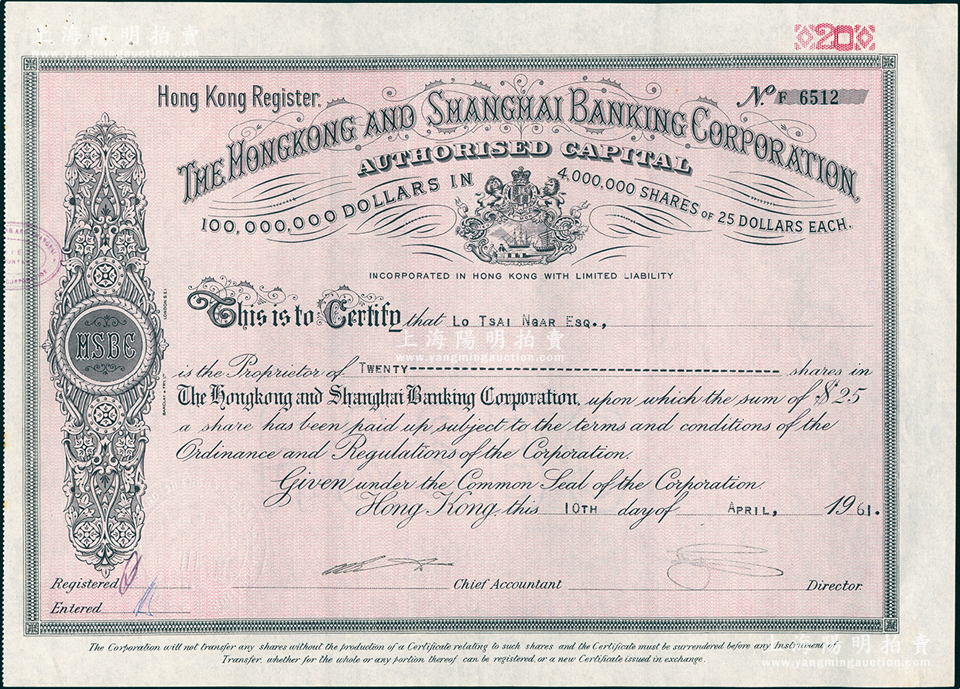 上海陽明拍賣
www.yangmingauction.com
20
Hong Kong Register.
No. F 6512
THE HONGKONG AND SHANGHAI BANKING CORPORATION,
AUTHORISED CAPITAL
100,000,000 DOLLARS IN 4,000,000 SHARES OF 25 DOLLARS EACH.
INCORPORATED IN HONG KONG WITH LIMITED LIABILITY
This is to Certify that LO TSAI NGAR ESQ.,
上海陽明拍賣
www.yangmingauction.com
HSBC
is the Proprietor of TWENTY shares in
The Hongkong and Shanghai Banking Corporation, upon which the sum of $25
a share has been paid up subject to the terms and conditions of the
Ordinance and Regulations of the Corporation.
Given under the Common Seal of the Corporation.
Hong Kong, this 10TH day of APRIL, 1961.
Registered
Chief Accountant
Director.
Entered
The Corporation will not transfer any shares without the production of a Certificate relating to such shares and the Certificate must be surrendered before any Instrument of
Transfer, whether for the whole or any portion thereof can be registered, or a new Certificate issued in exchange.
上海陽明拍賣
www.yangmingauction.com